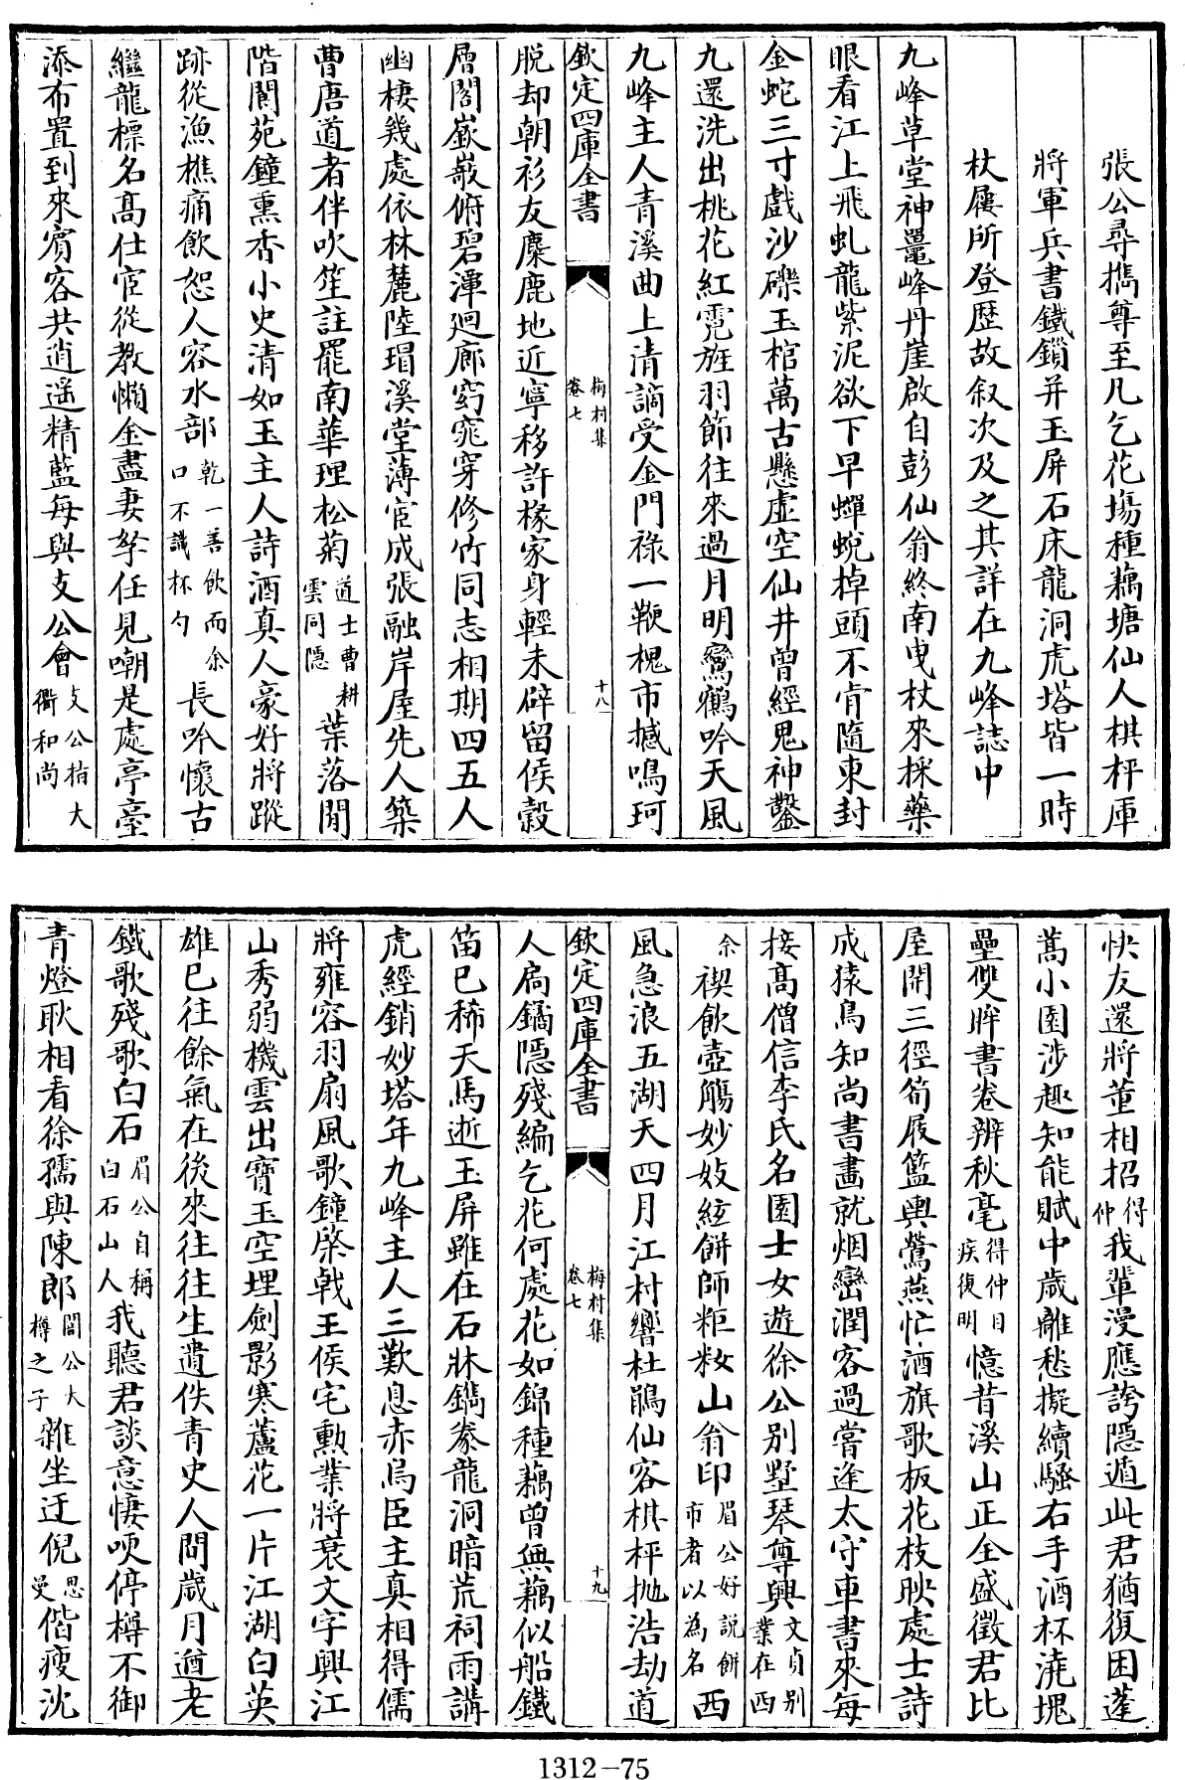 張公尋擕尊至凡乞花塲種藕塘仙人棋枰庫
將軍兵書鐵鎖并玉屏石床龍洞虎塔皆一時
杖屨所登歴故叙次及之其詳在九峰誌中
九峰草堂神鼍峰丹崖啟自彭仙翁終南曳杖來採藥
眼看江上飛虬龍紫泥欲下早蟬蛻掉頭不肯隨東封
金蛇三寸戲沙礫玉棺萬古懸虚空仙井曾經鬼神鑿
九還洗出桃花紅霓旌羽節往來過月明鸞鶴吟天風
九峰主人青溪曲上清謫受金門祿一鞭槐市撼鳴珂
欽定四庫全書
梅村集
卷七
十八
脱却朝衫友麋鹿地近寧移許椽家身輕未辟留侯穀
層閣嶔嶔俯碧潭廻廊窈窕穿修竹同志相期四五人
幽棲幾處依林麓陸瑁溪堂薄宦成張融岸屋先人築
曹唐道者伴吹笙註罷南華理松菊道士曹耕雲同隱葉落閒
階闃苑鐘熏香小史清如玉主人詩酒真人豪好將蹤
跡從漁樵痛飲恕人容水部乾一善飲而余口不識杯勺長吟懷古
繼龍標名髙仕宦從教懶金盡妻孥任見嘲是處亭臺
添布置到來賓客共逍遥精藍每與支公會支公指大衢和尚
快友還將董相招得仲我輩漫應誇隱遁此君猶復困蓬
蒿小園涉趣知能賦中歳離愁擬續騷右手酒杯澆塊
壘雙眸書卷辨秋毫得仲目疾復明憶昔溪山正全盛徵君比
屋開三徑筍屐籃輿鶯燕忙酒旗歌板花枝映處士詩
成猿鳥知尚書畫就烟巒潤客過嘗逢太守車書來每
接髙僧信李氏名園士女遊徐公别墅琴尊興文貞别業在西
余禊飲壺觴妙妓絃餅師粔籹山翁印眉公好説餅市者以為名西
風急浪五湖天四月江村響杜鵑仙客棋枰抛浩劫道
欽定四庫全書
梅村集
卷七
十九
人扃鐍隱殘編乞花何處花如錦種藕曾無藕似船鐵
笛已稀天馬逝玉屏雖在石牀鐫豢龍洞暗荒祠雨講
虎經銷妙塔年九峰主人三歎息赤烏臣主真相得儒
將雍容羽扇風歌鐘棨㦸王侯宅勲業將衰文字興江
山秀弱機雲出寶玉空埋劍影寒蘆花一片江湖白英
雄已往餘氣在後來往往生遺佚青史人間歳月遒老
鐵歌殘歌白石眉公自稱白石山人我聽君談意悽哽停樽不御
青燈耿相看徐孺與陳郎闇公大樽之子雜坐迂倪思曼偕瘦沈
1312-75